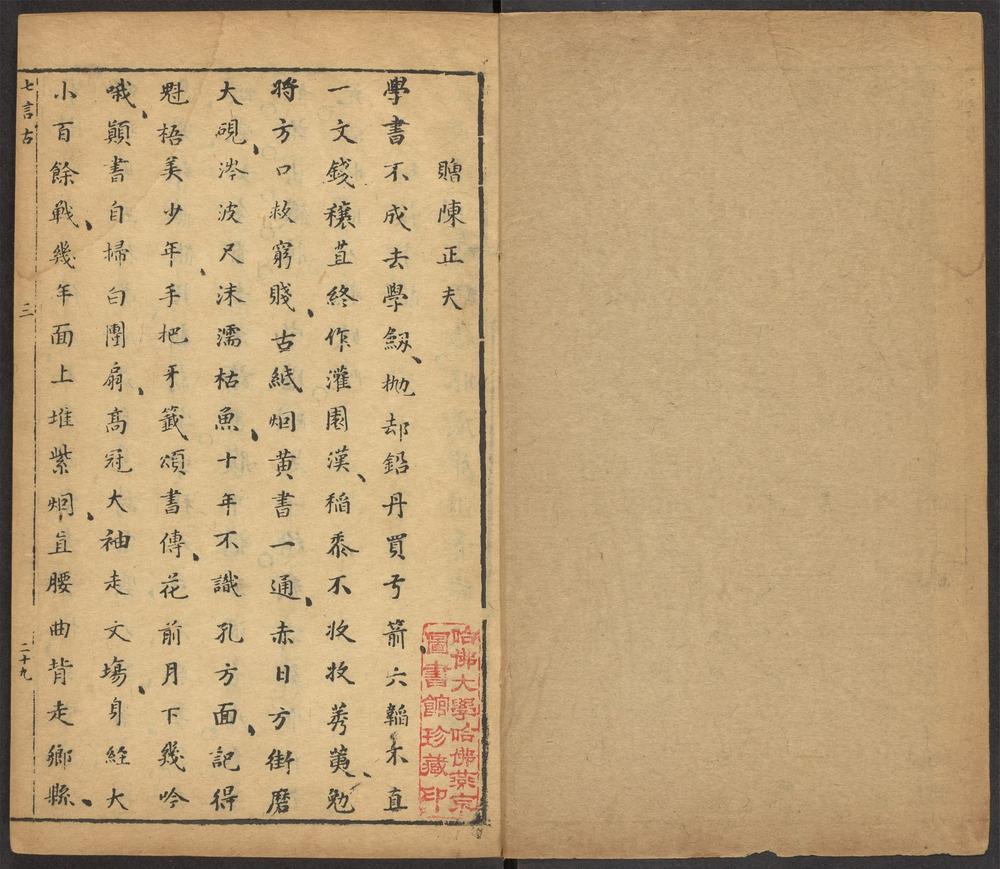 贈陳正夫
學書不成去學劔、抛却鉛丹買弓箭六韜未直
一文錢穰苴終作灌園漢、稻黍不收收荑、勉
將方口救窮賤、古紙烟黄書一通、赤日方街磨
大硯、涔波尺沫濡枯魚、十年不識孔方面、記得
魁梧美少年、手把牙籤頌書傳、花前月下幾吟
哦、顛書自掃白團扇、高冠大袖走文塲、身經大
小百餘戰、幾年面上堆紫烟、直腰曲背走鄉縣、
七言古
三
二十九
哈佛大學哈佛燕京
圖書館珍藏印